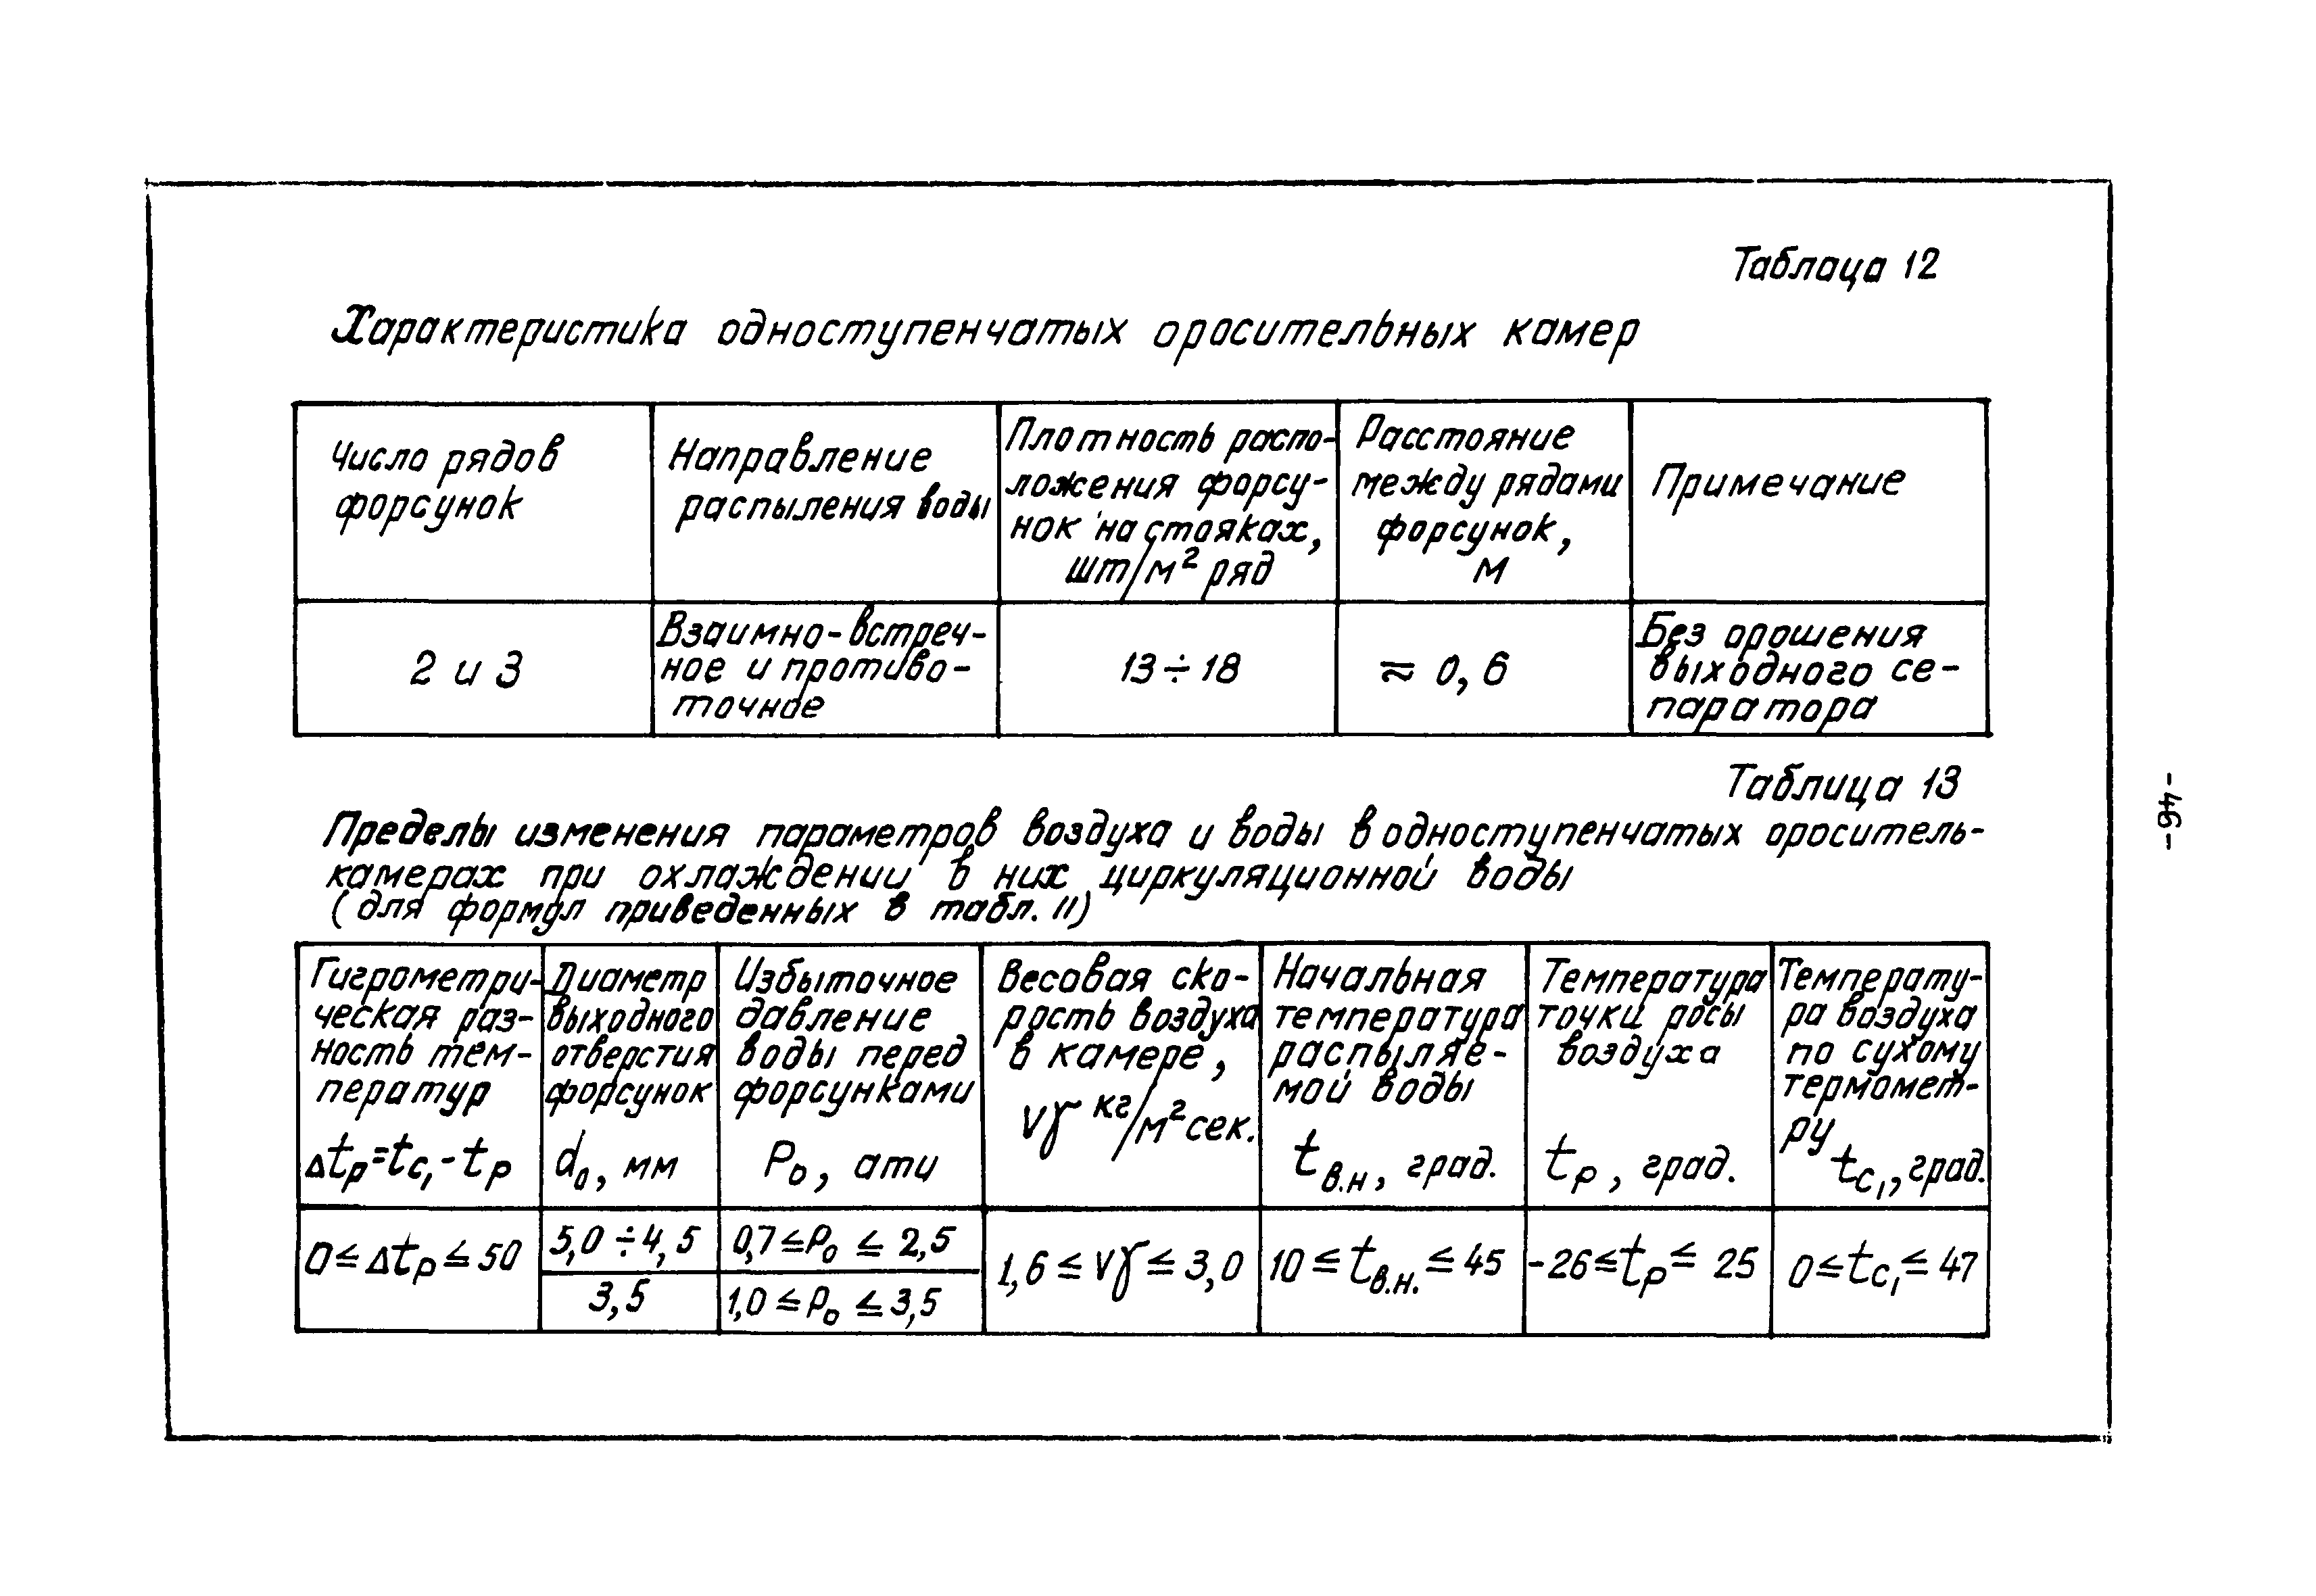 Таблаца 12
Характеристика одноступенчатых оросительных камер
Число рядов
форсунок
Направление
распыления воды
Плотность распо-
ложения форсу-
нок на стояках,
шт/м² ряд
Расстояние
между рядами
форсунок,
м
Примечание
2 и 3
Взаимно-встреч-
ное и противо-
точное
13÷18
≈ 0,6
Без орошения
выходного се-
паратора
Таблица 13
Пределы изменения параметров воздуха и воды в одноступенчатых ороситель-
камерах при охлаждении в них циркуляционной воды
(для формул приведенных в табл. 11)
Гигрометри-
ческая раз-
ность тем-
ператур
Δtр=tс₁-tр
Диаметр
выходного
отверстия
форсунок
d₀, мм
Избыточное
давление
воды перед
форсунками
P₀, ати
Весовая ско-
рость воздуха
в камере,
vγ кг/м²сек.
Начальная
температура
распыляе-
мой воды
tв.н, град.
Температура
точки росы
воздуха
tр, град.
Температу-
ра воздуха
по сухому
термомет-
ру
tс₁, град.
0≤Δtр≤50
5,0÷4,5
3,5
0,7≤P₀≤2,5
1,0≤P₀≤3,5
1,6≤vγ≤3,0
10≤tв.н.≤45
-26≤tр≤25
0≤tс₁≤47
-46-